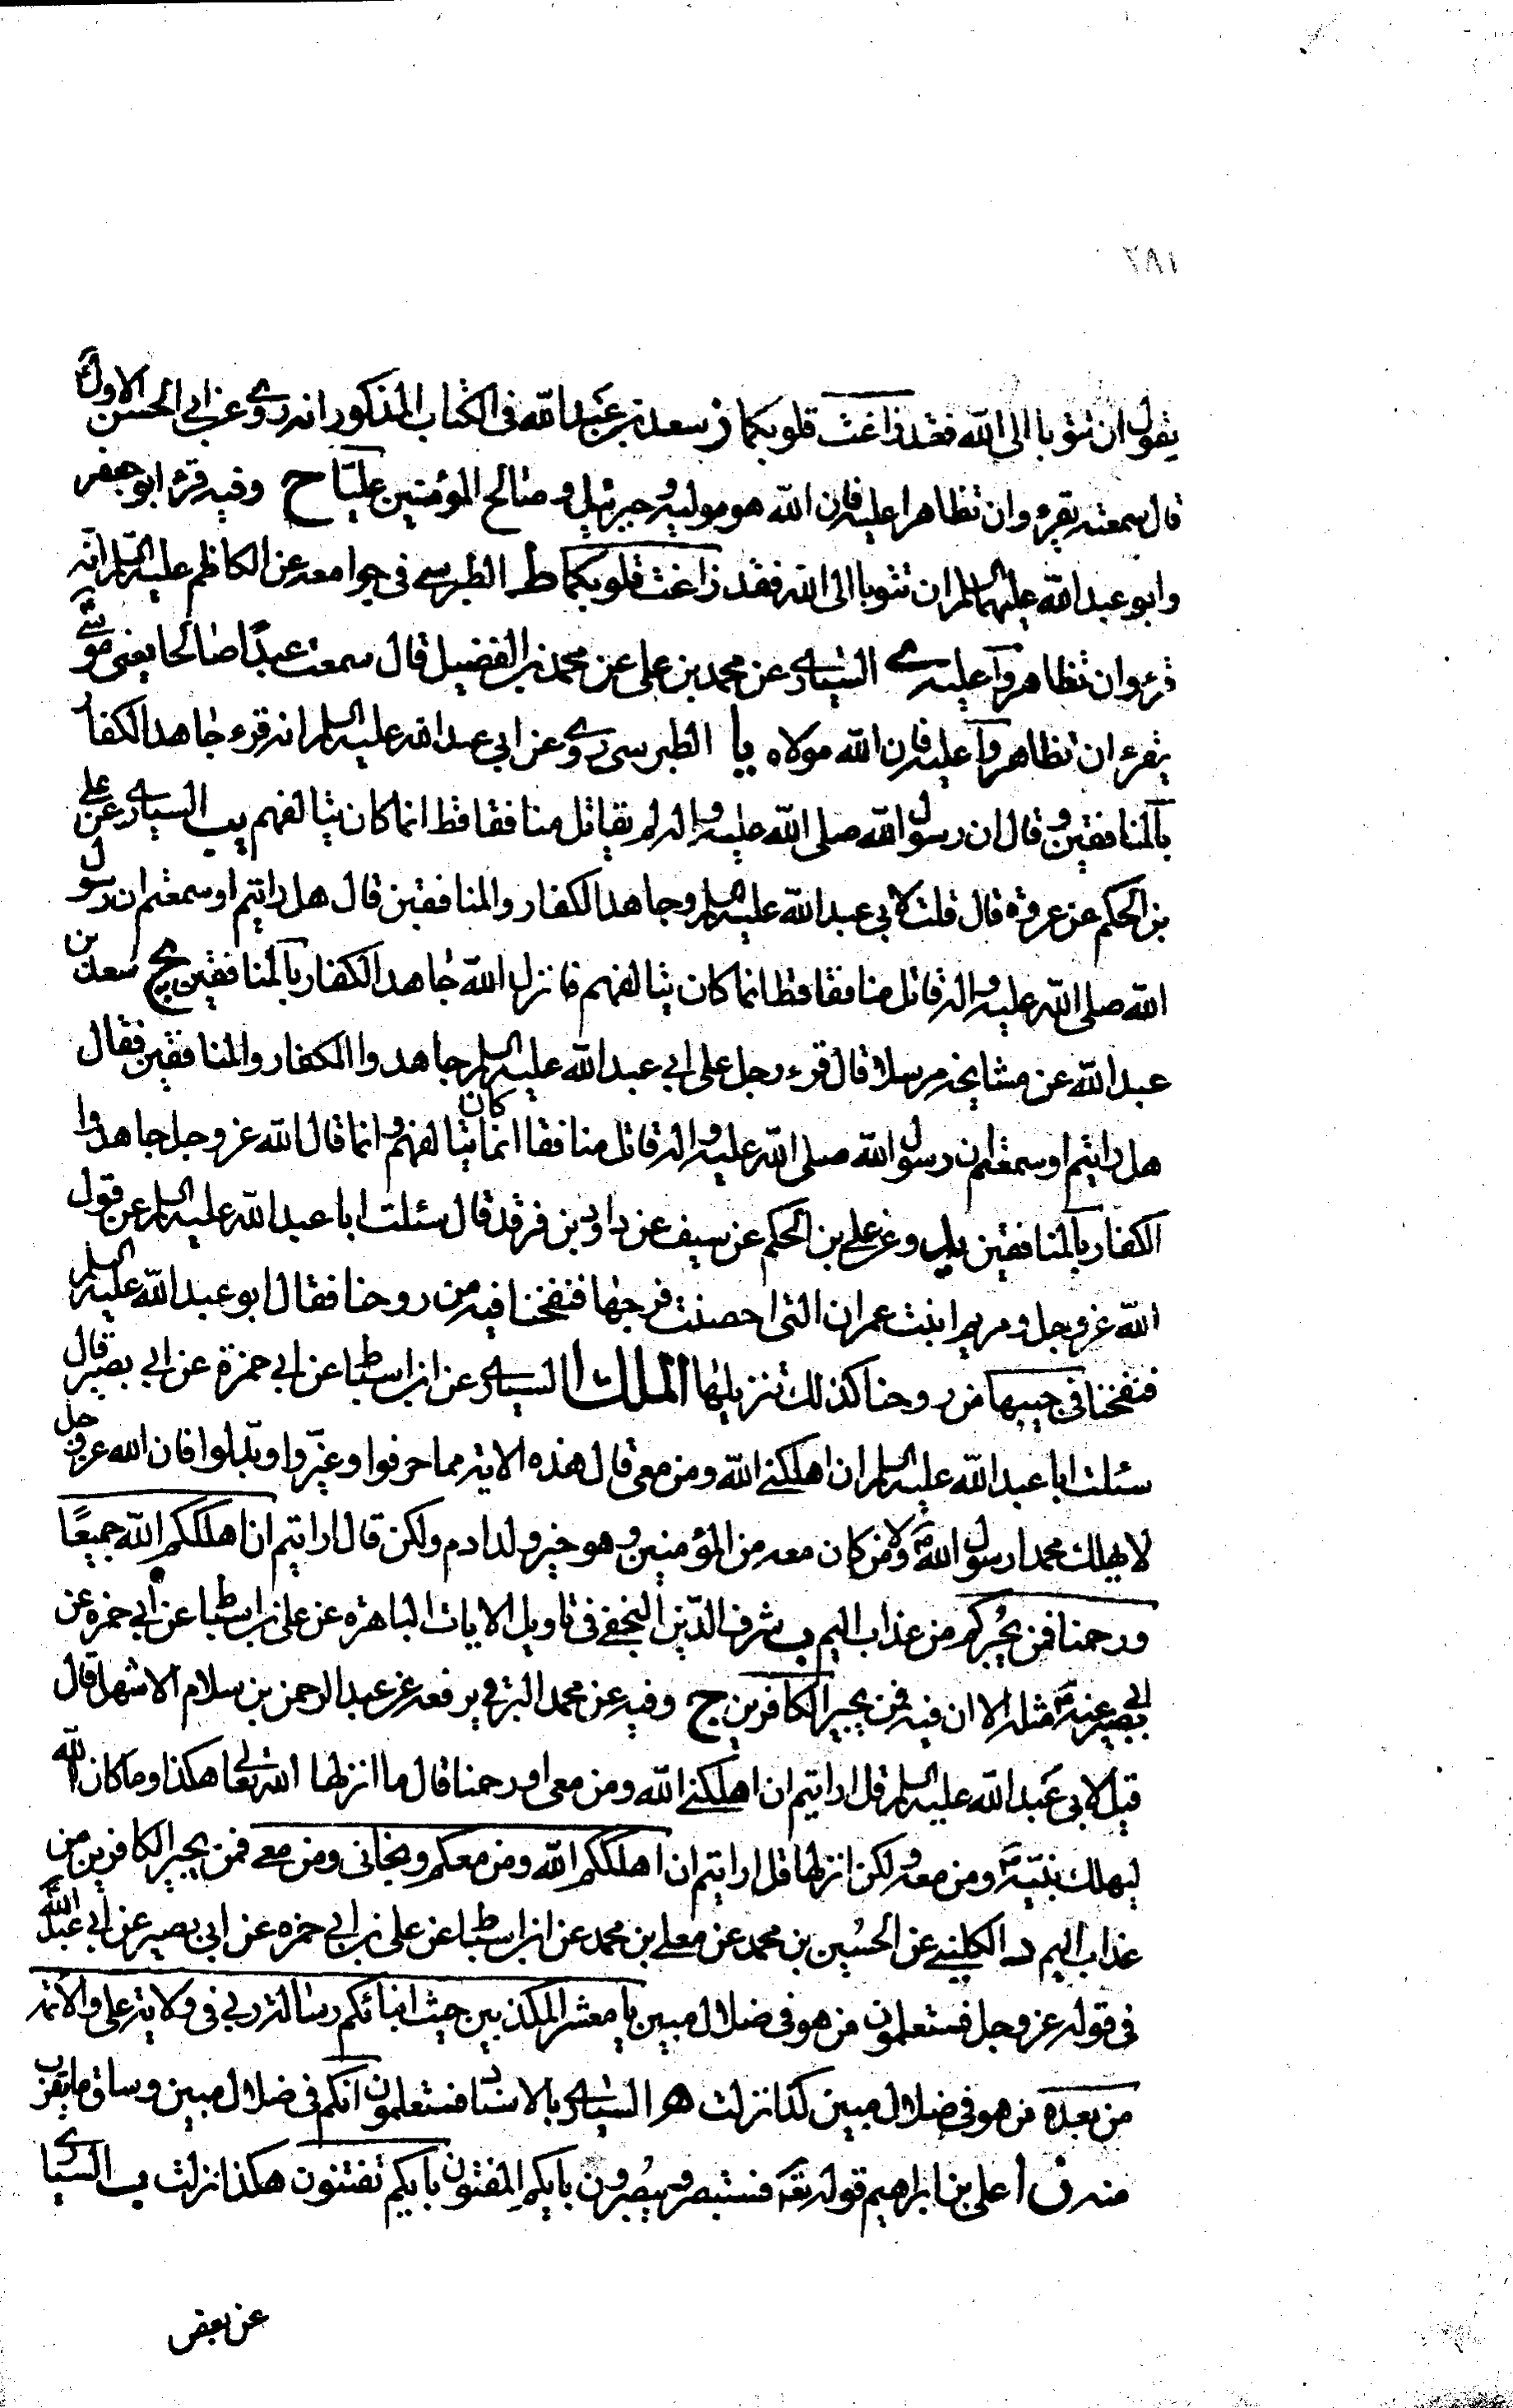 ٢٨١
يقول ان تتوبا الى الله فقد زاغت قلوبكما ز سعد بن عبد الله فى الكتاب المذكور انه روى عن ابى الحسن الاول
قال سمعته يقرء وان تظاهرا عليه فان الله هو موليه وجبرئيل وصالح المؤمنين عليا ح وفيه قرء ابو جعفر
وابو عبد الله عليهما السلم ان تتوبا الى الله فقد زاغت قلوبكما ط الطبرسى فى جوامعه عن الكاظم عليه السلم انه
قرء وان تظاهروا عليه ى السيارى عن محمد بن على عن محمد بن الفضيل قال سمعت عبدًا صالحا يعنى موسى
يقرء ان تظاهروا عليه فان الله مولاه يا الطبرسى روى عن ابى عبد الله عليه السلم انه قرء جاهد الكفار
بالمنافقين وقال ان رسول الله صلى الله عليه واله لم يقاتل منافقا قط انما كان يتالفهم يب السيارى عن على
بن الحكم عن عروة قال قلت لابى عبد الله عليه السلم وجاهد الكفار والمنافقين قال هل رايتم او سمعتم ان رسول
الله صلى الله عليه واله قاتل منافقا قط انما كان يتالفهم فانزل الله جاهد الكفار بالمنافقين يج سعد بن
عبد الله عن مشايخه مرسلا قال قرء رجل على ابى عبد الله عليه السلم جاهدوا الكفار والمنافقين فقال
هل رايتم او سمعتم ان رسول الله صلى الله عليه واله قاتل منافقا انما كان يتالفهم وانما قال الله عز وجل جاهدوا
الكفار بالمنافقين يد وعن على بن الحكم عن سيف عن داود بن فرقد قال سئلت ابا عبد الله عليه السلم عن قول
الله عز وجل ومريم ابنت عمران التى احصنت فرجها فنفخنا فيه من روحنا فقال ابو عبد الله عليه السلم
فنفخنا فى جيبها من روحنا كذلك تنزيلها الملك ا السيارى عن ابن اسباط عن ابى حمزة عن ابى بصير قال
سئلت ابا عبد الله عليه السلم ان اهلكنى الله ومن معى قال هذه الاية مما حرفوا وغيّروا وبدّلوا فان الله عز وجل
لا يهلك محمدا رسول الله ولا من كان معه من المؤمنين وهو خير ولد ادم ولكن قال ارايتم ان اهلككم الله جميعًا
ورحمنا فمن يُجيركم من عذاب اليم ب شرف الدّين النجفى فى تاويل الايات الباهرة عن على بن اسباط عن ابى حمزه عن
ابى بصير عنه مثله الا ان فيه فمن يجير الكافرين ج وفيه عن محمد البرقى يرفعه عن عبد الرحمن بن سلام الاشهل قال
قيل لابى عبد الله عليه السلم قل ارايتم ان اهلكنى الله ومن معى او رحمنا قال ما انزلها الله تعالى هكذا وما كان الله
ليهلك نبيّه ومن معه ولكن انزلها قل ارايتم ان اهلككم الله ومن معكم ونجانى ومن معى فمن يجير الكافرين من
عذاب اليم د الكلينى عن الحسين بن محمد عن معلى بن محمد عن ابن اسباط عن على بن ابى حمزه عن ابى بصير عن ابى عبد الله
فى قوله عز وجل فستعلمون من هو فى ضلال مبين يا معشر المكذبين حيث انبائكم رسالة ربى فى ولاية على والائمة
من بعده من هو فى ضلال مبين كذا نزلت ه السيارى بالاسناد فستعلمون انكم فى ضلال مبين وساق ما يقرب
منه ن ا على بن ابراهيم قوله تعه فستبصر ويبصرون بايكم المفتون بايكم تفتنون هكذا نزلت ب السيارى
عن بعض